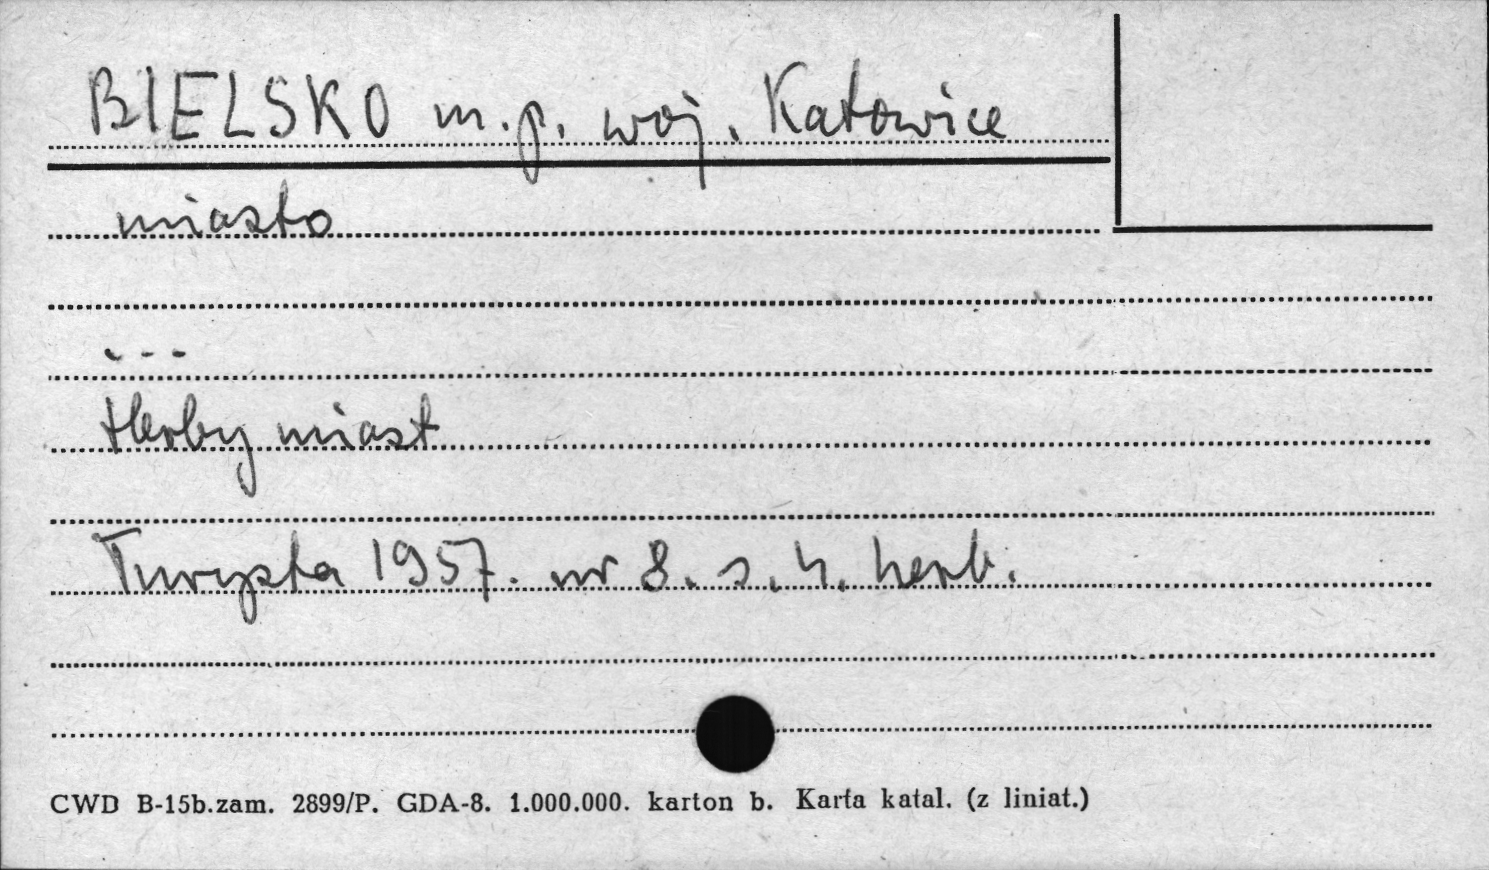 BIELSKO m.p. woj. Katowice
miasto
...
Herby miast
Turysta 1957. nr 8. s. 4. herb.
CWD B-15b.zam. 2899/P. GDA-8. 1.000.000. karton b. Karta katal. (z liniat.)